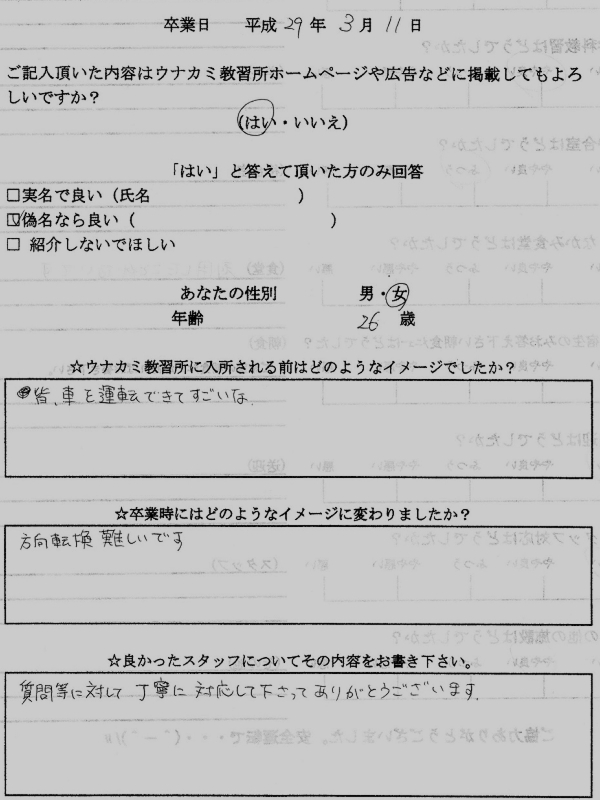 卒業日 平成 29 年 3 月 11 日
ご記入頂いた内容はウナカミ教習所ホームページや広告などに掲載してもよろ
しいですか？
(はい・いいえ)
「はい」と答えて頂いた方のみ回答
□実名で良い（氏名 ）
☑偽名なら良い（ ）
□ 紹介しないでほしい
あなたの性別 男・女
年齢 26 歳
☆ウナカミ教習所に入所される前はどのようなイメージでしたか？
皆、車を運転できてすごいな
☆卒業時にはどのようなイメージに変わりましたか？
方向転換 難しいです
☆良かったスタッフについてその内容をお書き下さい。
質問等に対して 丁寧に 対応して下さって ありがとうございます.